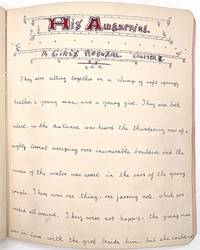 His Awakening.
A Girl's Refusal. Chapter I.
They were sitting together on a clump of soft springy
heather, a young man, and a young girl. They were both
silent, in the distance was heard the thundering roar of a
mighty torrent sweeping over innumerable boulders, and the
music of the water was sweet in the ears of the young
couple. There was one thing, one jarring note, which per-
vaded all around. They were not happy. the young man
was in love with the girl beside him, but she could not